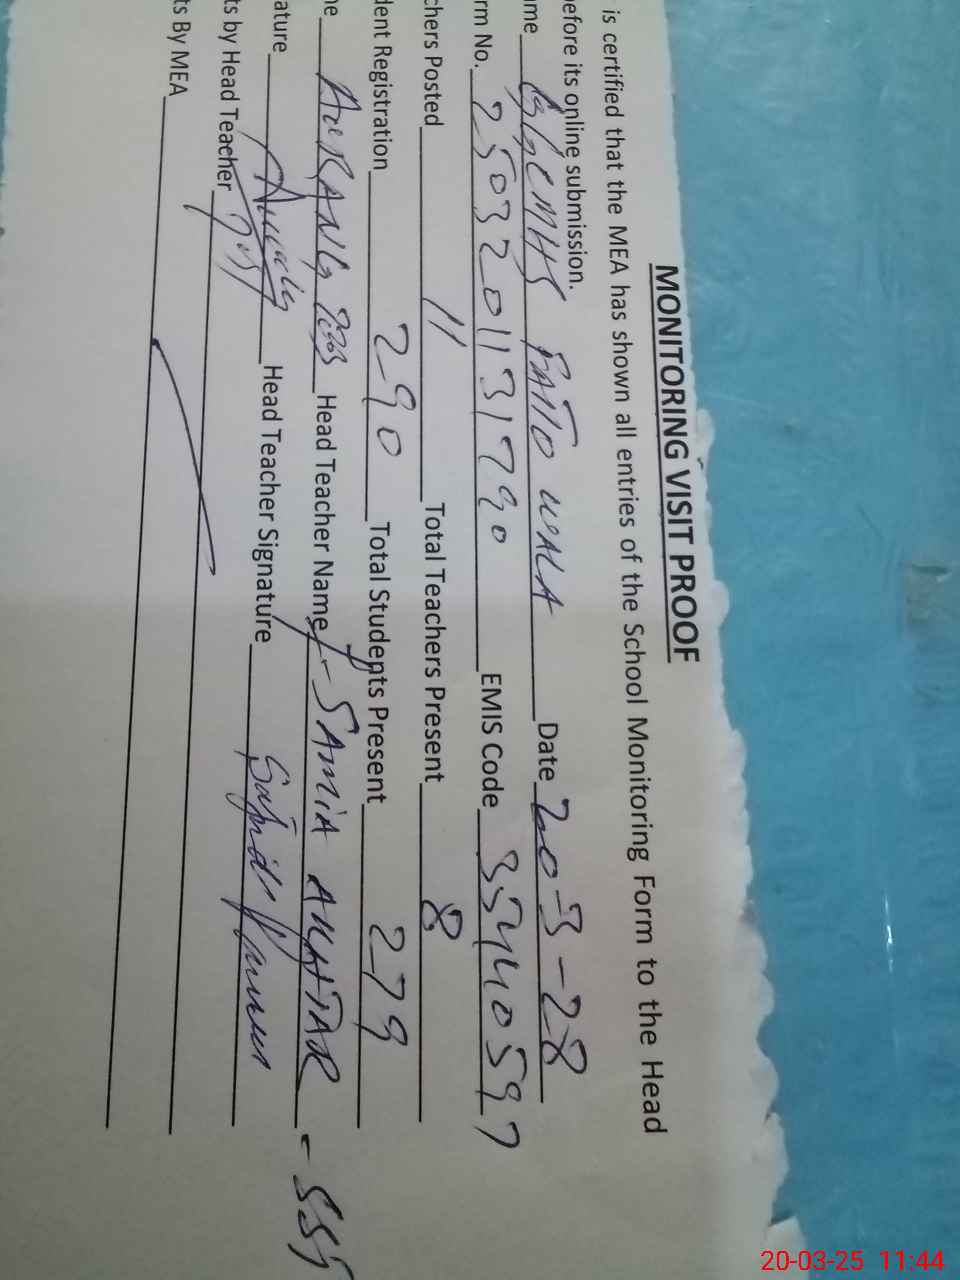 MONITORING VISIT PROOF
is certified that the MEA has shown all entries of the School Monitoring Form to the Head
efore its online submission.
ame GGCMHS PATTO WALA Date 20-3-28
rm No. 2503201131790 EMIS Code 35440597
chers Posted 11 Total Teachers Present 8
dent Registration 290 Total Students Present 279
ne AURANG Head Teacher Name SAMIA AKHTAR - SST
ature Head Teacher Signature
ts by Head Teacher
ts By MEA
20-03-25 11:44